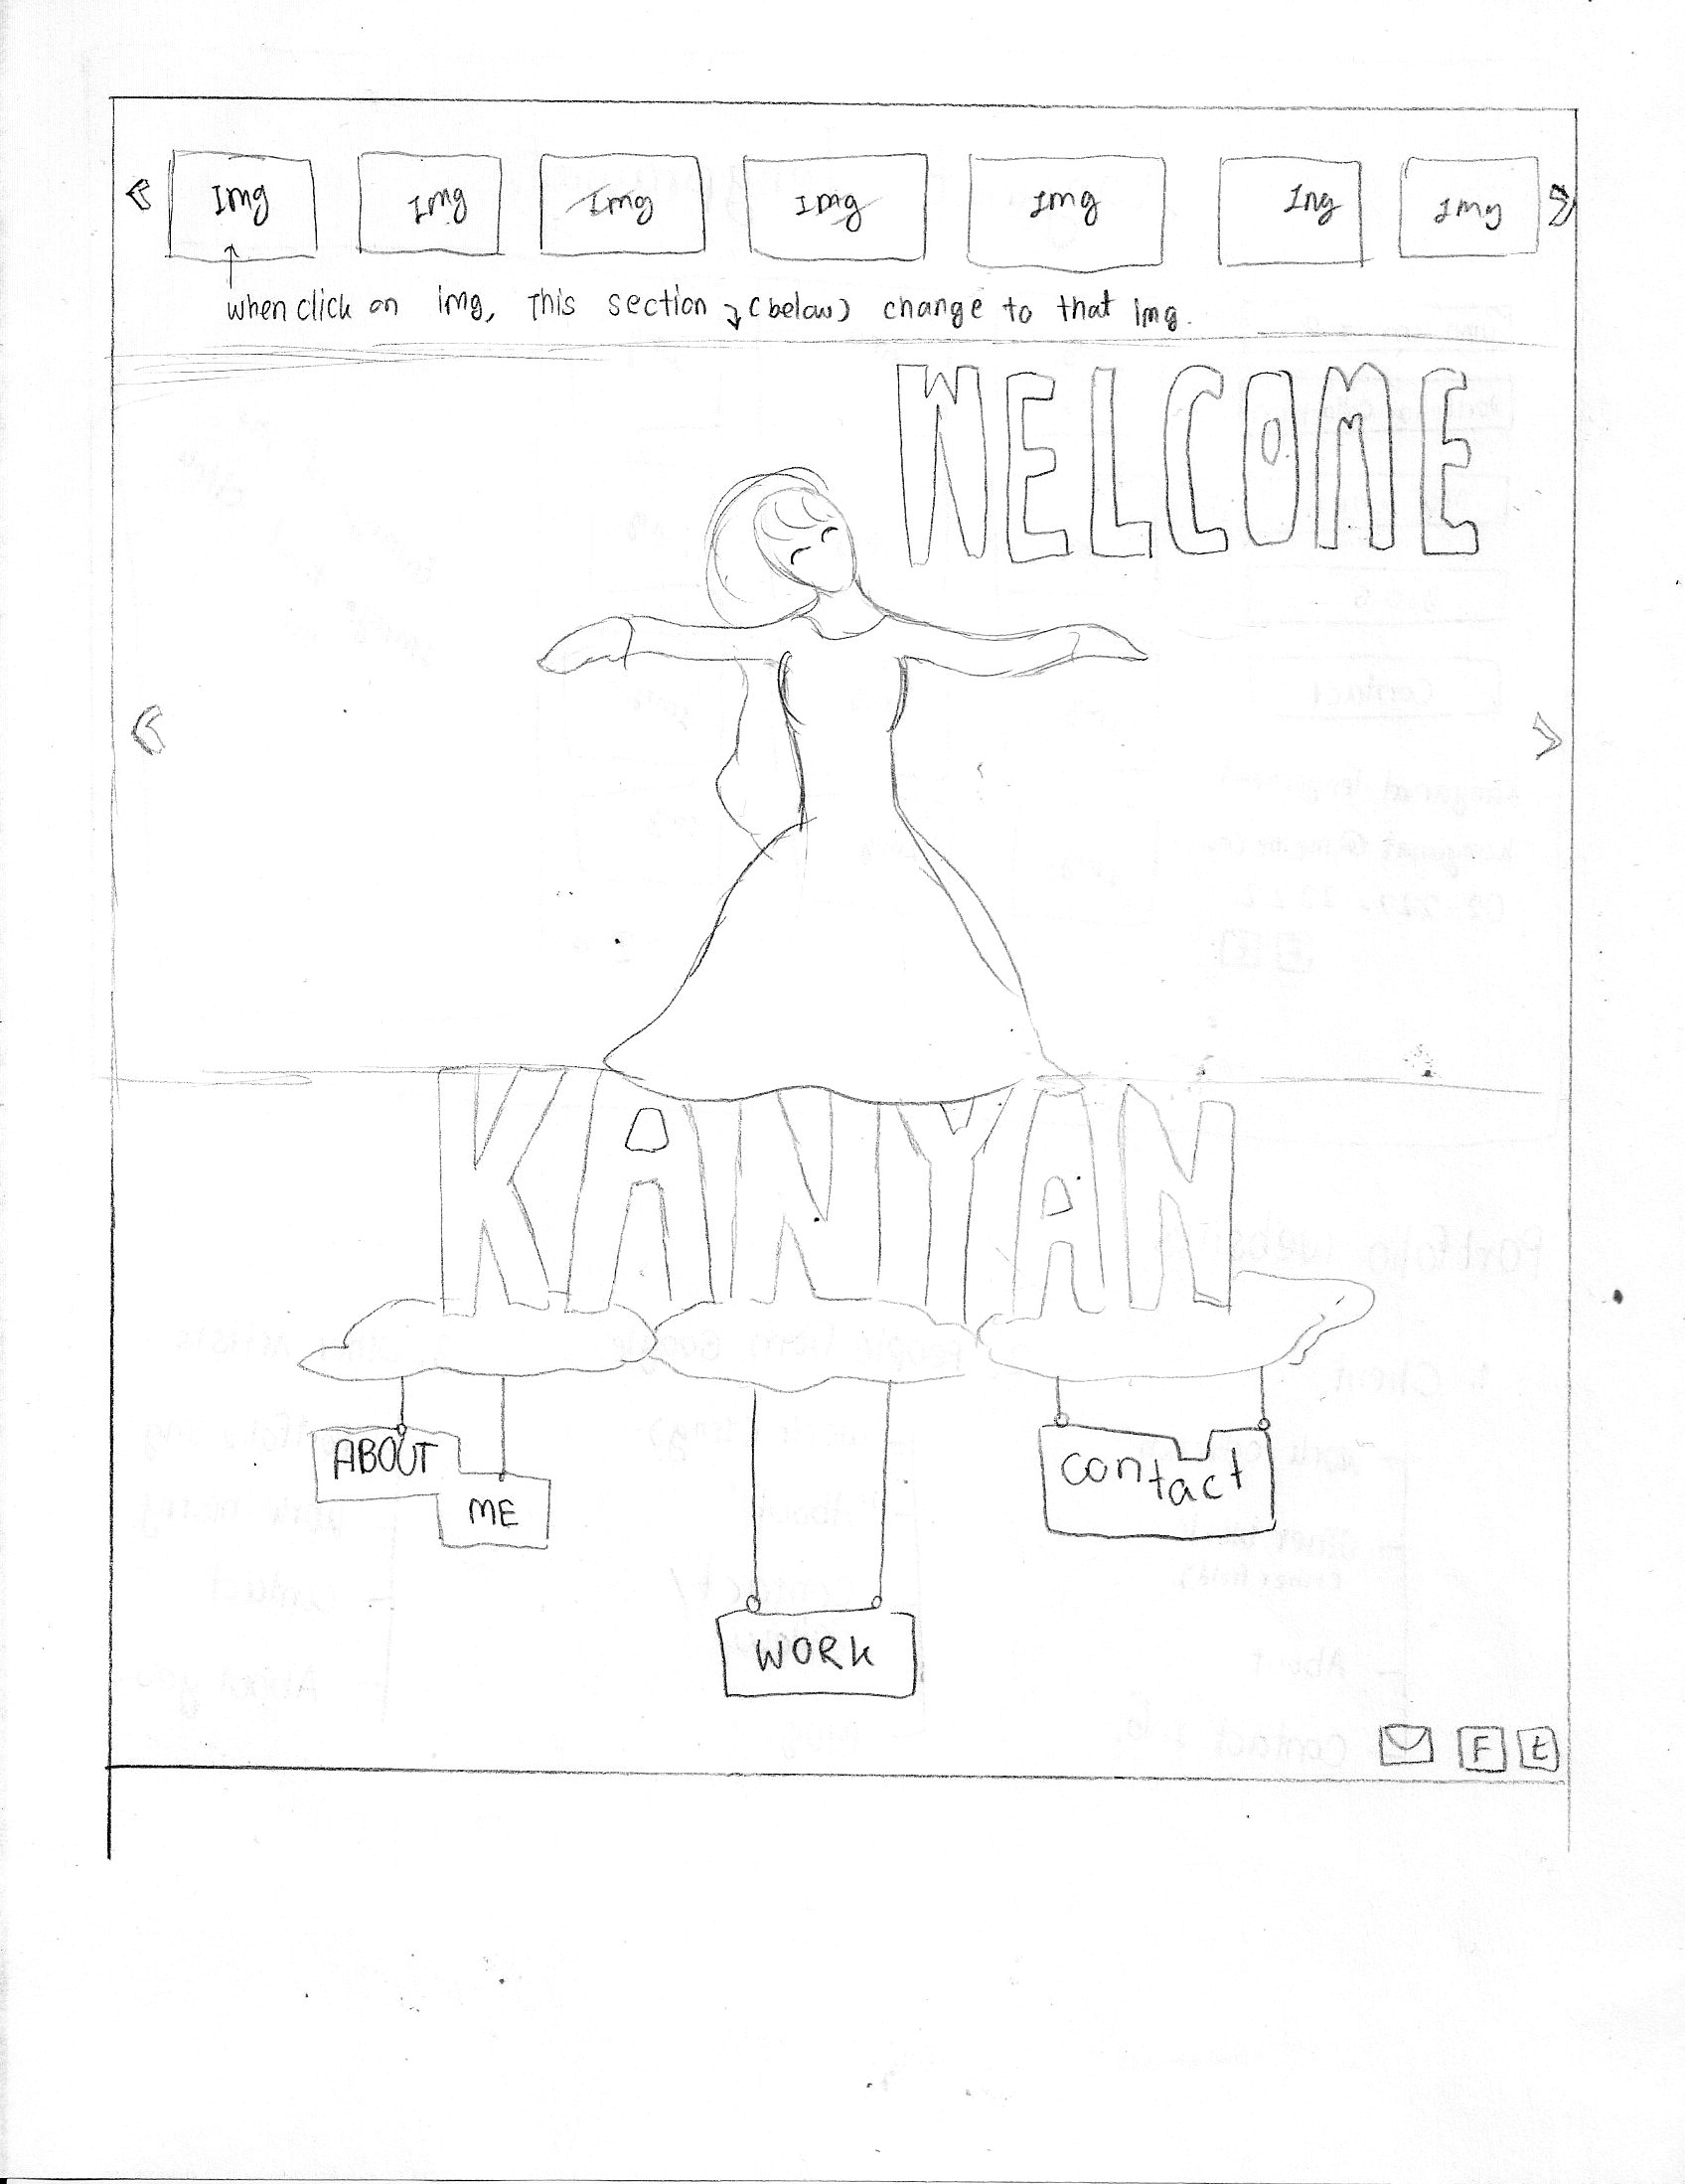 Img Img Img Img Img Ing Img
when click on img, This section (below) change to that img.
WELCOME
KANYAN
ABOUT
ME
contact
WORK
F t